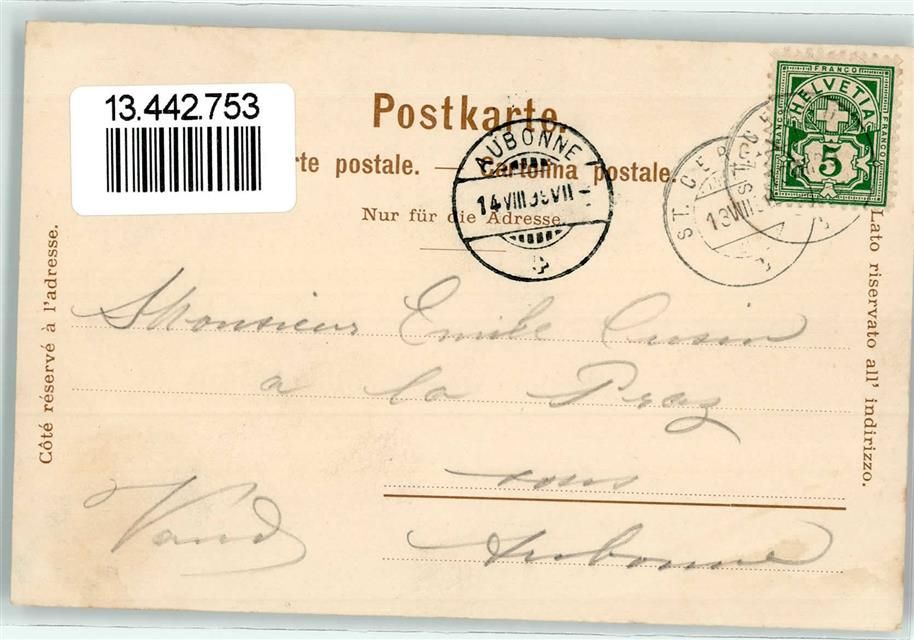 13.442.753
Postkarte.
rte postale. — Cartolina postale
Nur für die Adresse
AUBONNE
14 VIII 99 VII
ST. CER
13 VIII
FRANCO
HELVETIA
FRANCO
FRANCO
5
Côté réservé à l'adresse.
Lato riservato all' indirizzo.
Monsieur Emile Cusin
a la Praz
sous
Vaud
Aubonne